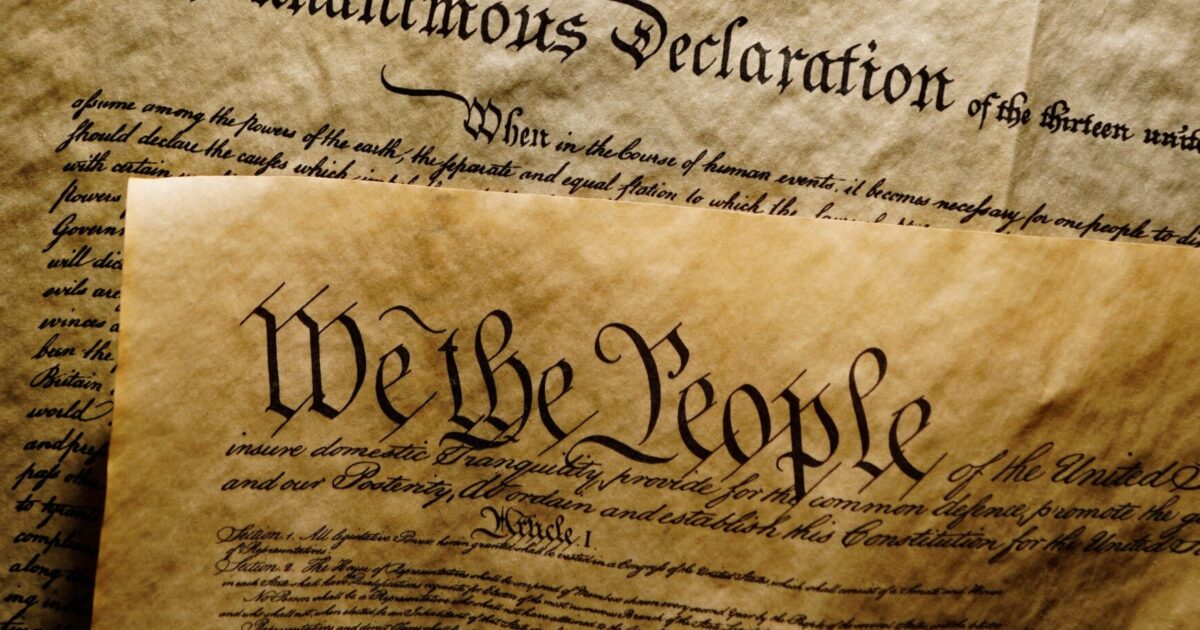 unanimous Declaration of the thirteen unit
When in the Course of human events, it becomes necessary for one people to di
assume among the powers of the earth, the separate and equal station to which the
should declare the causes which
with certain
powers
Govern
will dic
evils are
winces a
been the
Britain
world
and
pass
to
along
ing in
We the People of the United S
insure domestic Tranquility, provide for the common defence, promote the g
and our Posterity, do ordain and establish this Constitution for the United
Article I
Section 1. All legislative Powers herein granted shall be vested in a Congress of the United States, which shall consist of a Senate and House
of Representatives
Section 2. The House of Representatives shall be composed of Members chosen every second Year by the People of the several States, and the
in each State shall have the Qualifications requisite for Electors of the most numerous Branch of the State
No Person shall be a Representative who shall not have attained to the
and who shall not, when elected, be an Inhabitant of that State in which
Representatives and direct Taxes shall